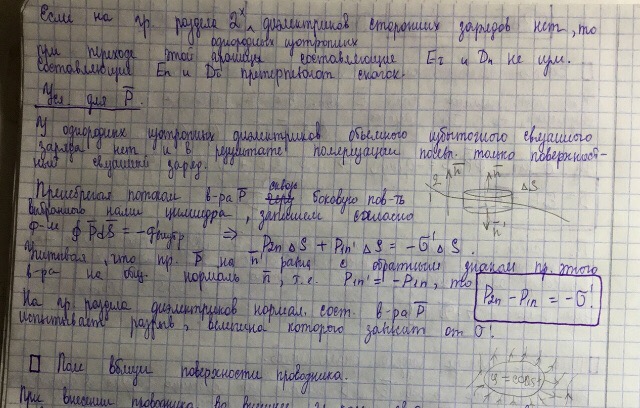 Если на гр. раздела 2х диэлектриков сторонних зарядов нет, то
однородных изотропных
при переходе этой границы составляющие Eτ и Dn не изм.
составляющие En и Dτ претерпевают скачок.
Усл. для P̅.
У однородных изотропных диэлектриков объемного избыточного связанного
заряда нет и в результате поляризации появл. только поверхност-
ный связанный заряд.
2 n̅ n̅ ΔS
n̅'
Пренебрегая потоком в-ра P̅ сквозь боковую пов-ть
выбранного нами цилиндра, запишем согласно
ф-ле ∮P̅dS̅ = -q'внутр ⇒ P2nΔS + P1n'ΔS = -σ'ΔS.
Учитывая, что пр. P̅ на n̅' равна с обратным знаком пр. этого
в-ра на общ. нормаль n̅, т.е. P1n' = -P1n, то
P2n - P1n = -σ'!
На гр. раздела диэлектриков нормал. сост. в-ра P̅
испытывает разрыв, величина которого зависит от σ'.
□ Поле вблизи поверхности проводника.
φ = const
При внесении проводника во внешнее